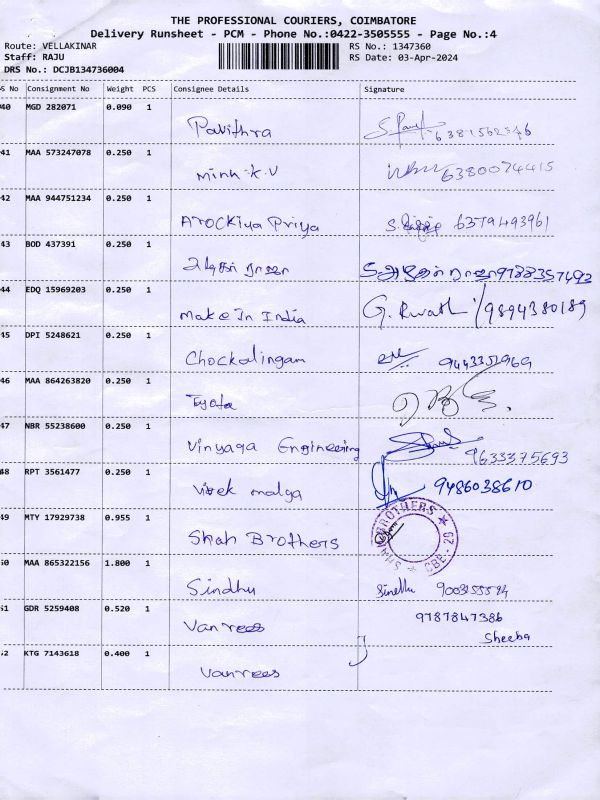 THE PROFESSIONAL COURIERS, COIMBATORE
Delivery Runsheet - PCM - Phone No.:0422-3505555 - Page No.:4
Route: VELLAKINAR RS No.: 1347360
Staff: RAJU RS Date: 03-Apr-2024
DRS No.: DCJB134736004
S No Consignment No Weight PCS Consignee Details Signature
40 MGD 282071 0.090 1
Pavithra
41 MAA 573247078 0.250 1
Minhi.k.v 6380074415
42 MAA 944751234 0.250 1
Arockiya Priya 6379493961
43 BOD 437391 0.250 1
44 EDQ 15969203 0.250 1
Make In India 9894380189
45 DPI 5248621 0.250 1
Chockalingam
46 MAA 864263820 0.250 1
47 NBR 55238600 0.250 1
Vinyaga Engineering 9633375693
48 RPT 3561477 0.250 1
9486038610
49 MTY 17929738 0.955 1
Shah Brothers SHAH BROTHERS ★ CBE.-29 ★
50 MAA 865322156 1.800 1
Sindhu Sindhu
51 GDR 5259408 0.520 1 9787847386
Vanrees Sheeba
52 KTG 7143618 0.400 1
Vanrees